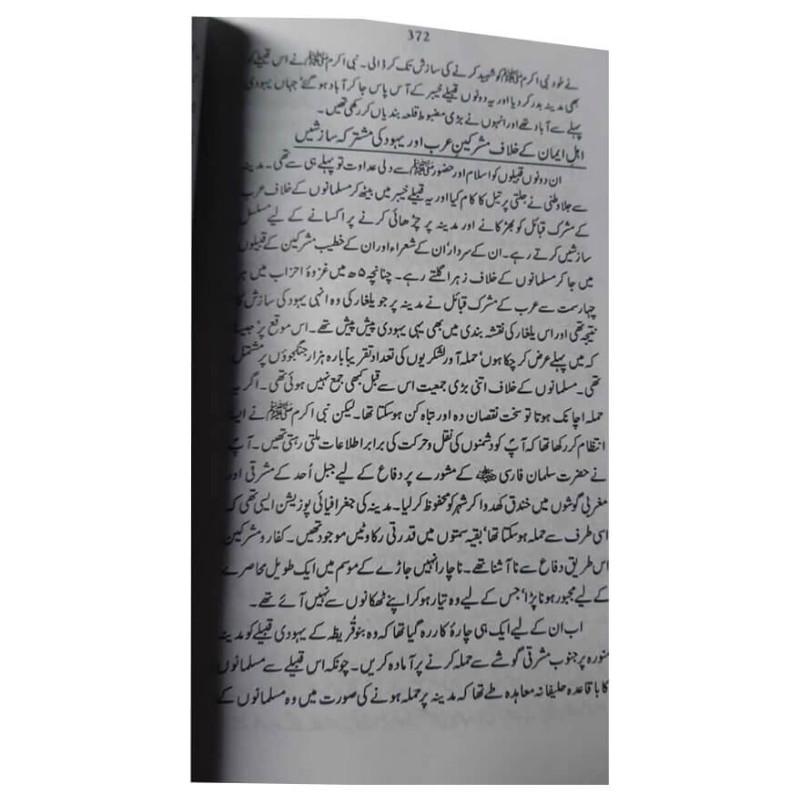 372
نے خود نبی اکرم ﷺ کو شہید کرنے کی سازش تک کر ڈالی۔ نبی اکرم ﷺ نے اس قبیلے کو
بھی مدینہ بدر کر دیا اور یہ دونوں قبیلے خیبر کے آس پاس جا کر آباد ہو گئے‘ جہاں یہودی
پہلے سے آباد تھے اور انہوں نے بڑی مضبوط قلعہ بندیاں کر رکھی تھیں۔
اہلِ ایمان کے خلاف مشرکینِ عرب اور یہود کی مشترکہ سازشیں
ان دونوں قبیلوں کو اسلام اور حضور ﷺ سے دلی عداوت تو پہلے ہی سے تھی۔ مدینہ
سے جلاوطنی نے جلتی پر تیل کا کام کیا اور یہ قبیلے خیبر میں بیٹھ کر مسلمانوں کے خلاف عرب
کے مشرک قبائل کو بھڑکانے اور مدینہ پر چڑھائی کرنے پر اکسانے کے لیے مسلسل
سازشیں کرتے رہے۔ ان کے سردار‘ ان کے شعراء اور ان کے خطیب مشرکین کے قبیلوں
میں جا کر مسلمانوں کے خلاف زہر اگلتے رہے۔ چنانچہ ۵ھ میں غزوۂ احزاب میں
چہار سمت سے عرب کے مشرک قبائل نے مدینہ پر جو یلغار کی وہ انہی یہود کی سازش کا
نتیجہ تھی اور اس یلغار کی نقشہ بندی میں بھی یہی یہودی پیش پیش تھے۔ اس موقع پر‘ جیسا
کہ میں پہلے عرض کر چکا ہوں‘ حملہ آور لشکریوں کی تعداد تقریباً بارہ ہزار جنگجوؤں پر مشتمل
تھی۔ مسلمانوں کے خلاف اتنی بڑی جمعیت اس سے قبل کبھی جمع نہیں ہوئی تھی۔ اگر یہ
حملہ اچانک ہوتا تو سخت نقصان دہ اور تباہ کن ہو سکتا تھا۔ لیکن نبی اکرم ﷺ نے ایسا
انتظام کر رکھا تھا کہ آپؐ کو دشمنوں کی نقل و حرکت کی برابر اطلاعات ملتی رہتی تھیں۔ آپؐ
نے حضرت سلمان فارسی ؓ کے مشورے پر دفاع کے لیے جبل اُحد کے مشرقی اور
مغربی گوشوں میں خندق کھدوا کر شہر کو محفوظ کر لیا۔ مدینہ کی جغرافیائی پوزیشن ایسی تھی کہ
اسی طرف سے حملہ ہو سکتا تھا‘ بقیہ سمتوں میں قدرتی رکاوٹیں موجود تھیں۔ کفار و مشرکین
اس طریق دفاع سے نا آشنا تھے۔ ناچار انہیں جاڑے کے موسم میں ایک طویل محاصرے
کے لیے مجبور ہونا پڑا‘ جس کے لیے وہ تیار ہو کر اپنے ٹھکانوں سے نہیں آئے تھے۔
اب ان کے لیے ایک ہی چارۂ کار رہ گیا تھا کہ وہ بنو قُریظہ کے یہودی قبیلے کو مدینہ
منورہ پر جنوب مشرقی گوشے سے حملہ کرنے پر آمادہ کریں۔ چونکہ اس قبیلے سے مسلمانوں
کا باقاعدہ حلیفانہ معاہدہ طے تھا کہ مدینہ پر حملہ ہونے کی صورت میں وہ مسلمانوں کے